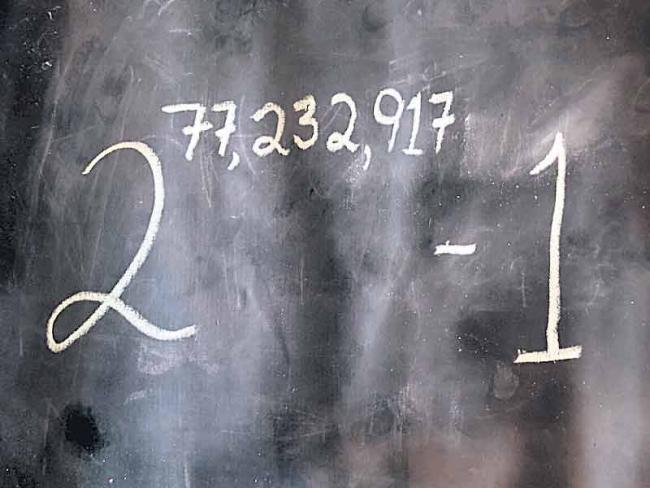 2^77,232,917 - 1